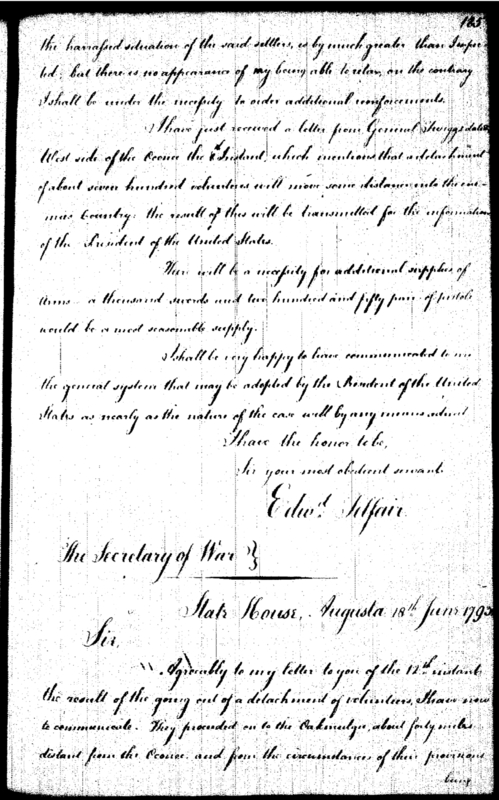 185
the harrassed situation of the said settlers, is by much greater than I expec-
ted; but there is no appearance of my being able to relax, on the contrary
I shall be under the necessity to order additional reinforcements.
I have just received a letter from General Twiggs dated
West side of the Oconee the Instant, which mentions that a detachment
of about seven hundred volunteers will move some distance into the ene-
mies Country: the result of this will be transmitted for the information
of the President of the United States.
There will be a necessity for additional supplies of
Arms – a thousand swords and two hundred and fifty pair of pistols
would be a most seasonable supply.
I shall be very happy to have communicated to me
the general system that may be adopted by the President of the United
States as nearly as the nature of the case will by any means admit
I have the honor to be,
Sir your most obedient servant.
Edwd. Telfair
The Secretary of War }
State House, Augusta 18th June 1793
Sir,
"Agreeably to my letter to you of the 12th instant
the result of the going out of a detachment of volunteers, I have now
to communicate. They proceeded on to the Oakmulgu, about forty miles
distant from the Oconee and from the circumstances of their provisions
being